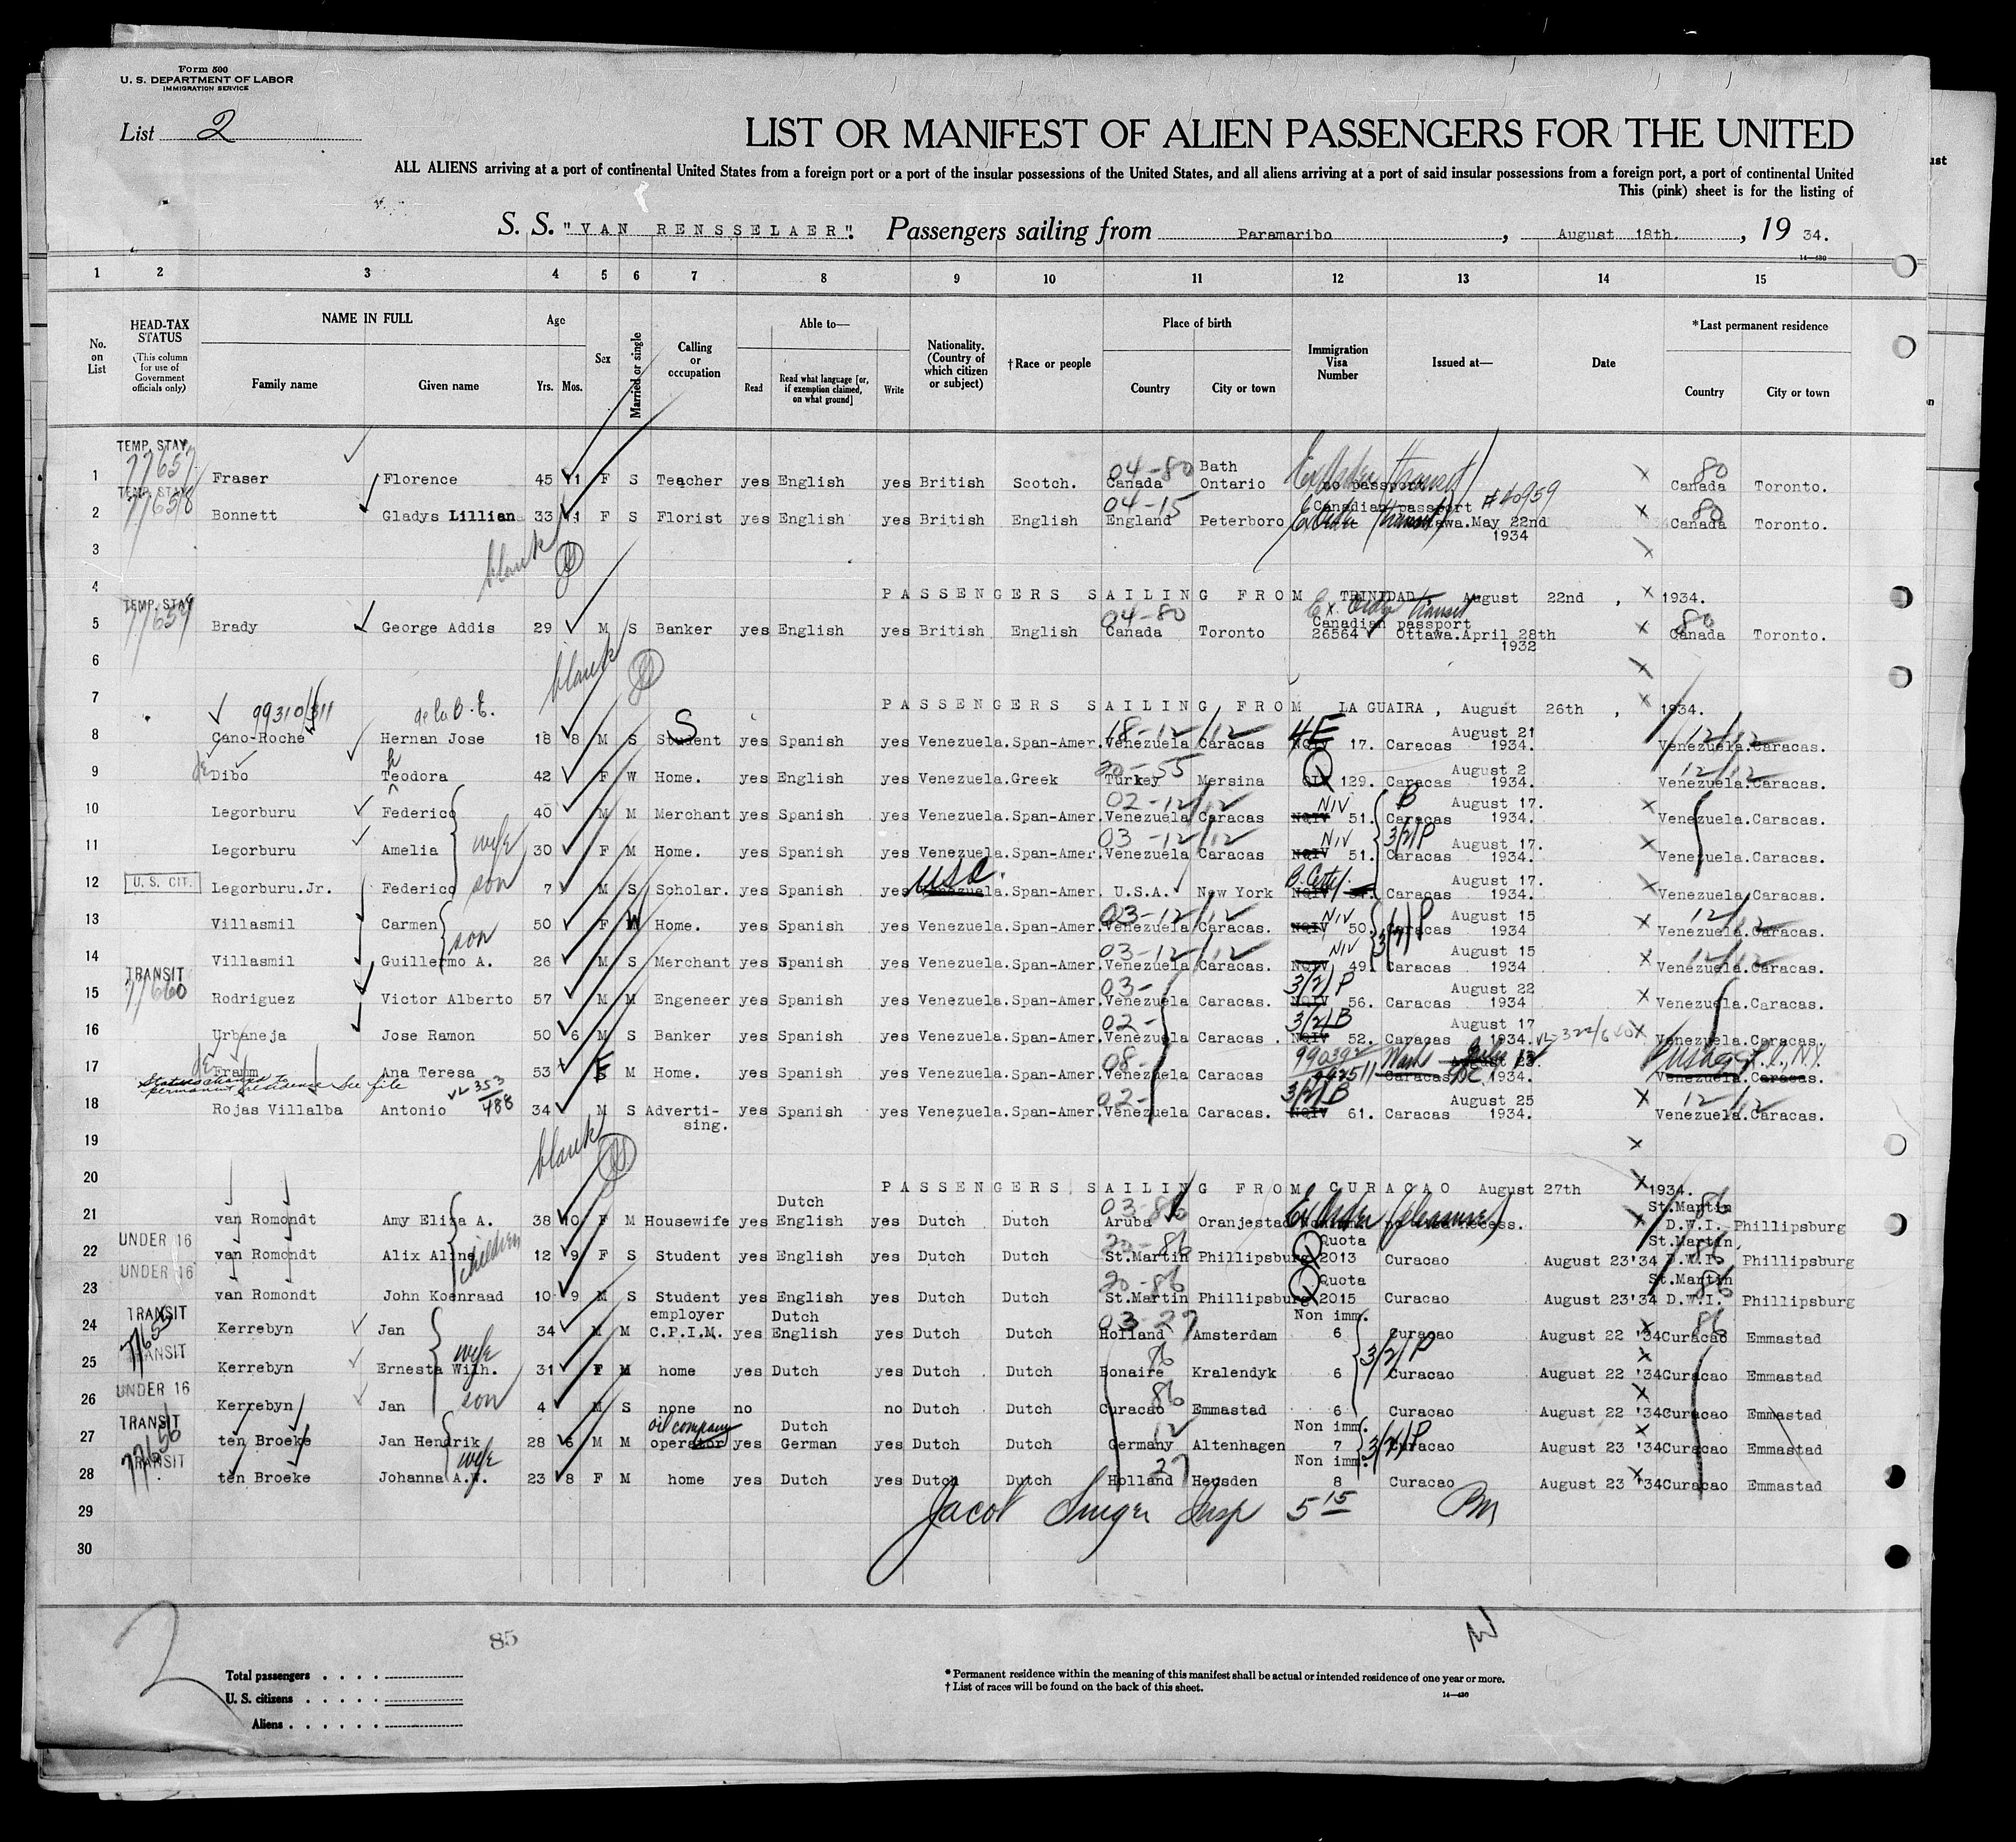 Form 500
U. S. DEPARTMENT OF LABOR
IMMIGRATION SERVICE
List 2
LIST OR MANIFEST OF ALIEN PASSENGERS FOR THE UNITED
ALL ALIENS arriving at a port of continental United States from a foreign port or a port of the insular possessions of the United States, and all aliens arriving at a port of said insular possessions from a foreign port, a port of continental United
This (pink) sheet is for the listing of
S. S. "VAN RENSSELAER". Passengers sailing from Paramaribo, August 18th., 19 34.
14—430
1 2 3 4 5 6 7 8 9 10 11 12 13 14 15
No. on List
HEAD-TAX STATUS (This column for use of Government officials only)
NAME IN FULL Family name Given name
Age Yrs. Mos.
Sex
Married or single
Calling or occupation
Able to— Read Read what language [or, if exemption claimed, on what ground] Write
Nationality. (Country of which citizen or subject)
†Race or people
Place of birth Country City or town
Immigration Visa Number
Issued at—
Date
*Last permanent residence Country City or town
TEMP. STAY 77657
1 Fraser Florence 45 11 F S Teacher yes English yes British Scotch. 04-80 Canada Bath Ontario Ex Order transit no passport 80 Canada Toronto.
TEMP. STAY 77658
2 Bonnett Gladys Lillian 33 11 F S Florist yes English yes British English 04-15 England Peterboro Ex Order transit Canadian passport #40959 Ottawa. May 22nd 1934 80 Canada Toronto.
3 blank
4 PASSENGERS SAILING FROM TRINIDAD August 22nd , 1934.
TEMP. STAY 77659
5 Brady George Addis 29 M S Banker yes English yes British English 04-80 Canada Toronto Ex. Order transit Canadian passport 26564 Ottawa. April 28th 1932 80 Canada Toronto.
6 blank
7 PASSENGERS SAILING FROM LA GUAIRA, August 26th , 1934.
99310/311 de la B. E.
8 Cano-Roche Hernan Jose 18 8 M S Student S yes Spanish yes Venezuela. Span-Amer. 18-12/12 Venezuela Caracas 4E NQIV 17. Caracas August 21 1934. 12/12 Venezuela. Caracas.
9 de Dibo Teodora h 42 F W Home. yes English yes Venezuela. Greek 20-55 Turkey Mersina Q QIV 129. Caracas August 2 1934. 12/12 Venezuela. Caracas.
10 Legorburu Federico 40 M M Merchant yes Spanish yes Venezuela. Span-Amer. 02-12/12 Venezuela Caracas NIV NQIV 51. B Caracas August 17. 1934. Venezuela. Caracas.
11 Legorburu Amelia wife 30 F M Home. yes Spanish yes Venezuela. Span-Amer. 03-12/12 Venezuela Caracas NIV NQIV 51. 3/2/P Caracas August 17. 1934. Venezuela. Caracas.
12 U. S. CIT. Legorburu. Jr. Federico son 7 M S Scholar. yes Spanish yes Venezuela. USC. Span-Amer. U.S.A. New York B. Certf. NQIV Caracas August 17. 1934. Venezuela. Caracas.
13 Villasmil Carmen 50 F W Home. yes Spanish yes Venezuela. Span-Amer. 03-12/12 Venezuela Caracas. NIV NQIV 50. 3/2/P Caracas August 15 1934 12/12 Venezuela. Caracas.
14 Villasmil Guillermo A. son 26 M S Merchant yes Spanish yes Venezuela. Span-Amer. 03-12/12 Venezuela Caracas. NIV NQIV 49. Caracas August 15 1934 12/12 Venezuela. Caracas.
TRANSIT 77660
15 Rodriguez Victor Alberto 57 M M Engeneer yes Spanish yes Venezuela. Span-Amer. 03- Venezuela Caracas. 3/2/P NQIV 56. Caracas August 22 1934 Venezuela. Caracas.
16 Urbaneja Jose Ramon 50 6 M S Banker yes Spanish yes Venezuela. Span-Amer. 02- Venezuela Caracas . 3/2/B NQIV 52. Caracas August 17 1934. Venezuela. Caracas.
17 de Framm Ana Teresa 53 F M Home. yes Spanish yes Venezuela. Span-Amer. 08- Venezuela Caracas Wash DC Caracas 1934. L.I., N.Y. Venezuela. Caracas.
Status changed to permanent residence See file VL 353/488
18 Rojas Villalba Antonio 34 M S Advertising. yes Spanish yes Venezuela. Span-Amer. 02- Venezuela Caracas. 3/2/B NQIV 61. Caracas August 25 1934. 12/12 Venezuela. Caracas.
19 blank
20 PASSENGERS SAILING FROM CURACAO August 27th 1934.
21 van Romondt Amy Eliza A. 38 10 F M Housewife yes Dutch English yes Dutch Dutch 03-86 Aruba Oranjestad Ex Order (pleasure) St.Martin D.W.I. 86 Phillipsburg
UNDER 16
22 van Romondt Alix Aline children 12 9 F S Student yes English yes Dutch Dutch 20-86 St.Martin Phillipsburg Q Quota 2013 Curacao August 23'34 St.Martin D.W.I. 86 Phillipsburg
UNDER 16
23 van Romondt John Koenraad 10 9 M S Student yes English yes Dutch Dutch 20-86 St.Martin Phillipsburg Q Quota 2015 Curacao August 23'34 St.Martin D.W.I. 86 Phillipsburg
TRANSIT
24 Kerrebyn Jan 34 M M employer C.P.I.M. yes Dutch English yes Dutch Dutch 03-27 Holland Amsterdam Non imm. 6 Curacao August 22 '34 86 Curacao Emmastad
TRANSIT
25 Kerrebyn Ernesta Wilh. wife 31 F M home yes Dutch yes Dutch Dutch 86 Bonaire Kralendyk 6 3/2/P Curacao August 22 '34 Curacao Emmastad
UNDER 16
26 Kerrebyn Jan son 4 M S none no no Dutch Dutch 86 Curacao Emmastad 6 Curacao August 22 '34 Curacao Emmastad
TRANSIT 77656
27 ten Broeke Jan Hendrik 28 6 M M oil company operator yes Dutch German yes Dutch Dutch 12 Germany Altenhagen Non imm. 7 3/2/P Curacao August 23 '34 Curacao Emmastad
TRANSIT
28 ten Broeke Johanna A.W. wife 23 8 F M home yes Dutch yes Dutch Dutch 27 Holland Heusden Non imm. 8 Curacao August 23 '34 Curacao Emmastad
29 Jacob Singer Insp 5 15 PM
30
2
85
Total passengers
U. S. citizens
Aliens
* Permanent residence within the meaning of this manifest shall be actual or intended residence of one year or more.
† List of races will be found on the back of this sheet.
14—430